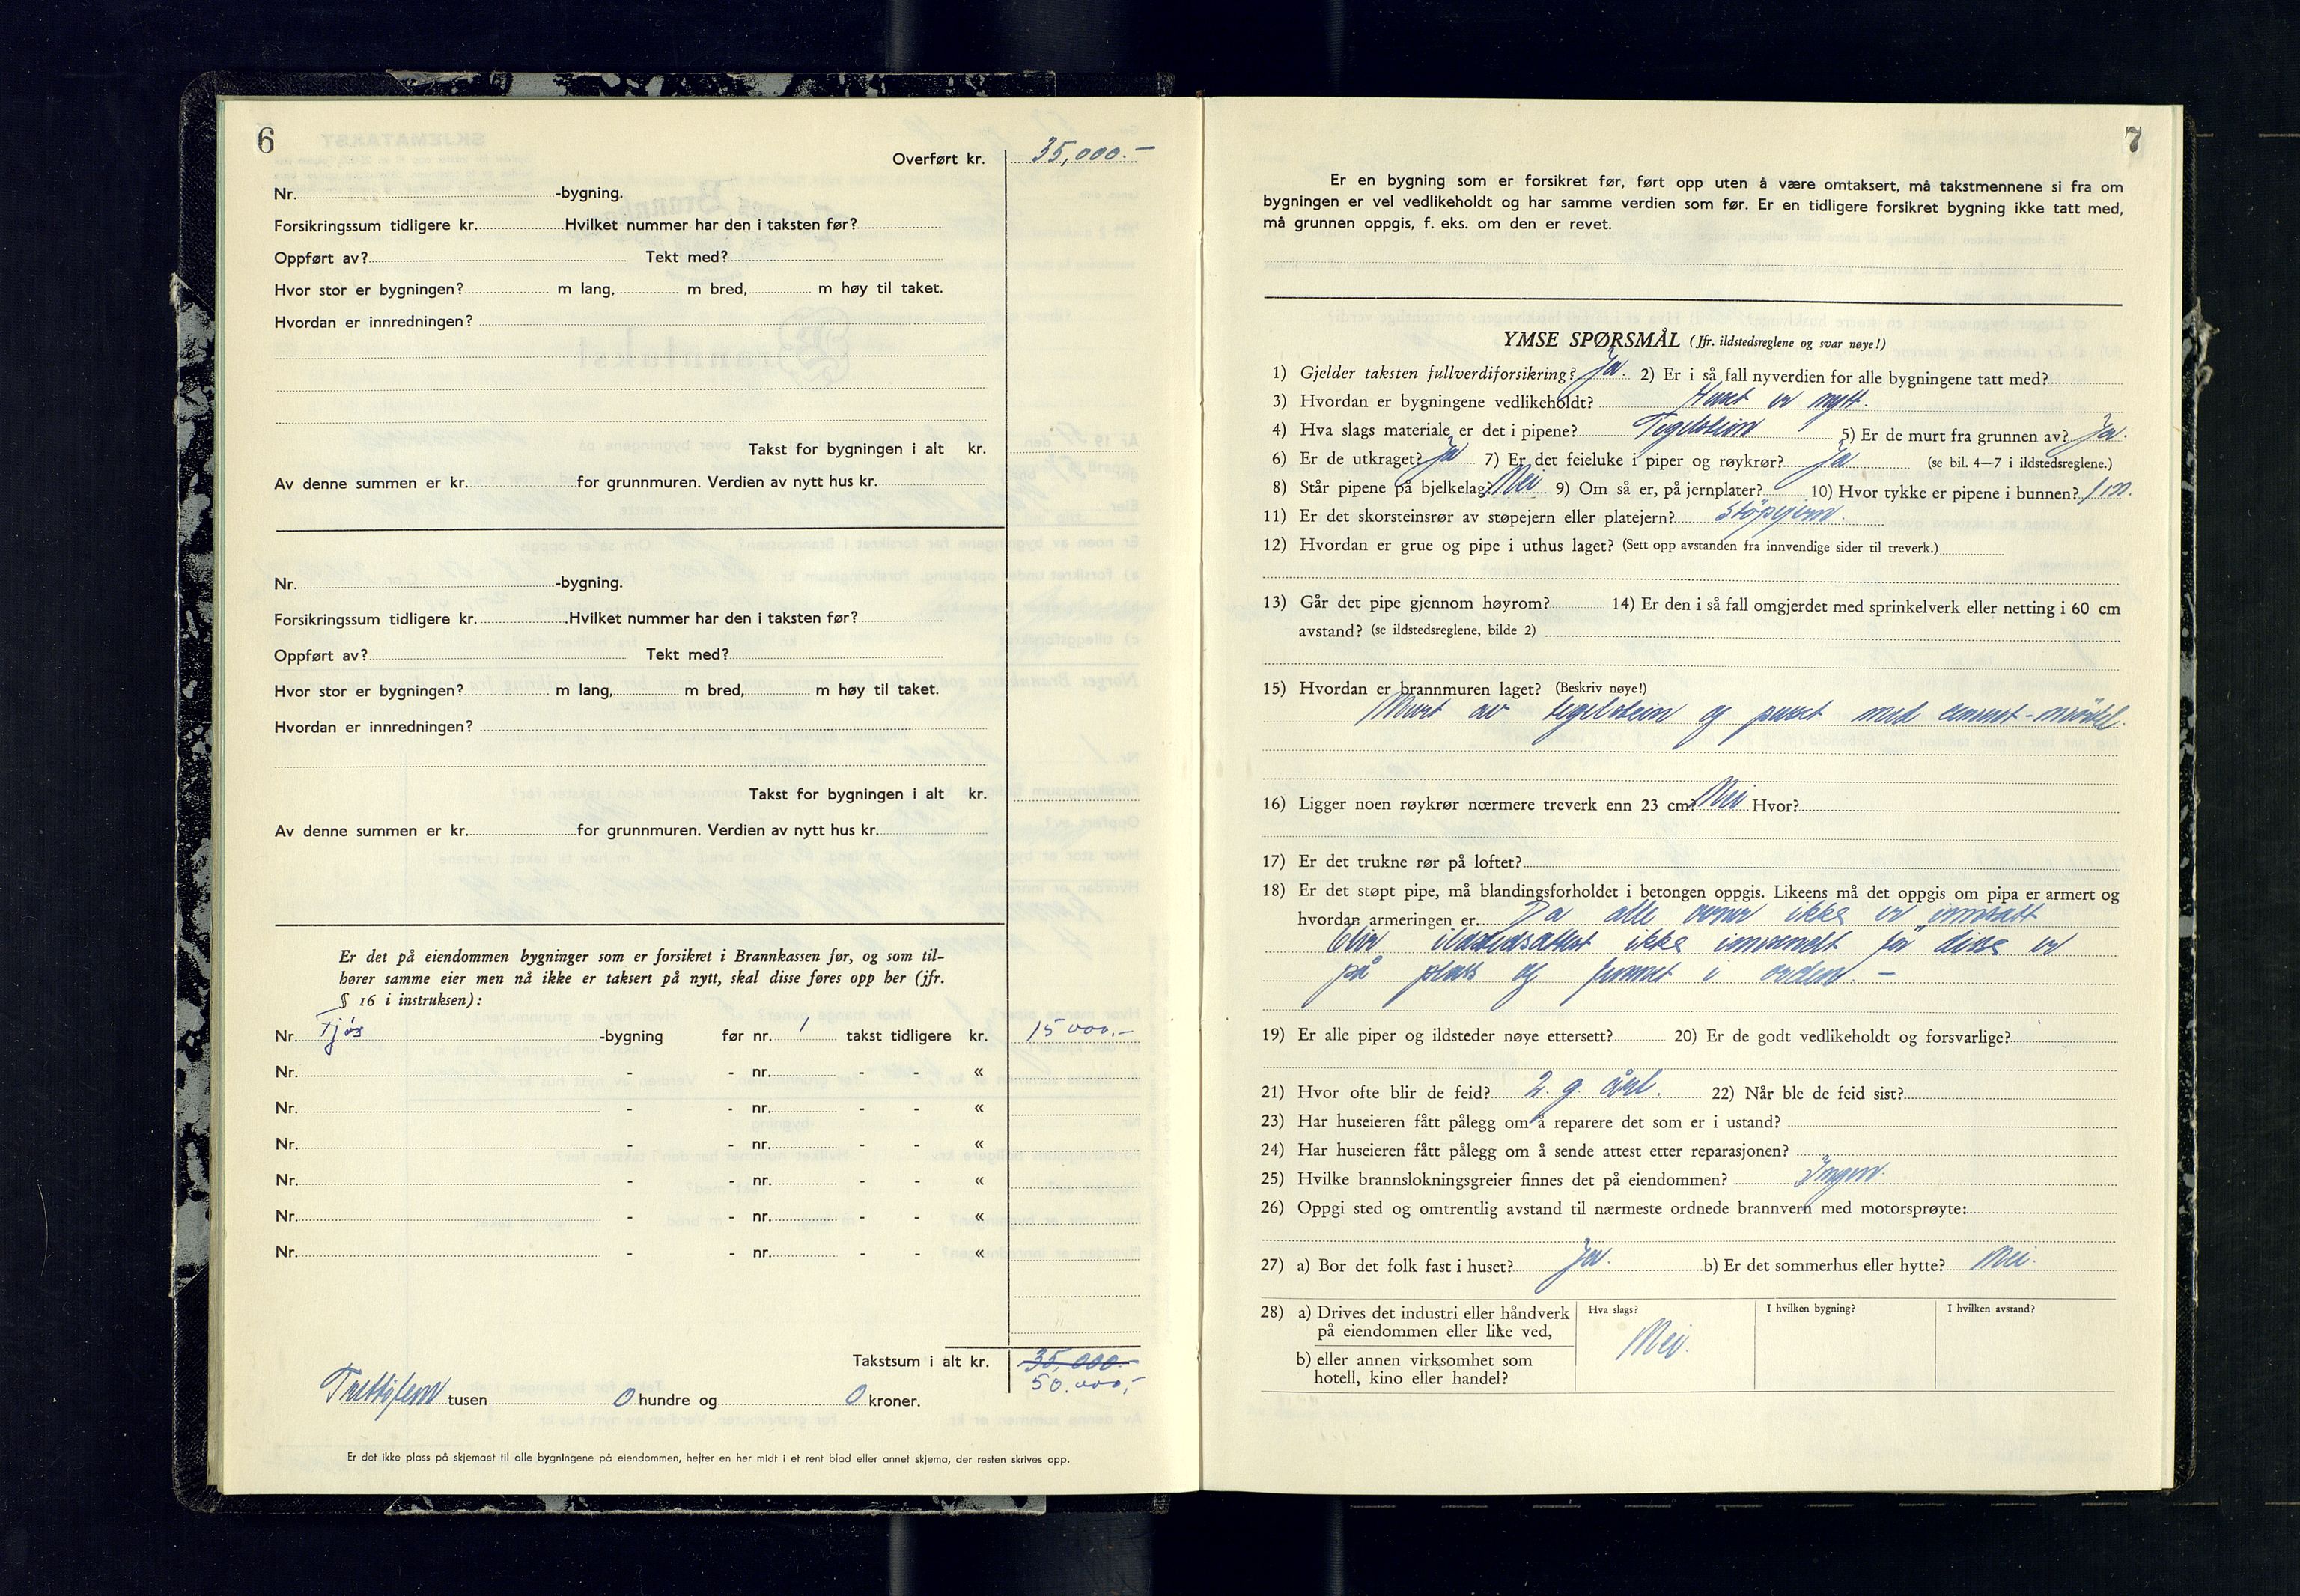 6
Overført kr. 35,000.-
Nr. -bygning.
Forsikringssum tidligere kr. Hvilket nummer har den i taksten før?
Oppført av? Tekt med?
Hvor stor er bygningen? m lang, m bred, m høy til taket.
Hvordan er innredningen?
Takst for bygningen i alt kr.
Av denne summen er kr. for grunnmuren. Verdien av nytt hus kr.
Nr. -bygning.
Forsikringssum tidligere kr. Hvilket nummer har den i taksten før?
Oppført av? Tekt med?
Hvor stor er bygningen? m lang, m bred, m høy til taket.
Hvordan er innredningen?
Takst for bygningen i alt kr.
Av denne summen er kr. for grunnmuren. Verdien av nytt hus kr.
Er det på eiendommen bygninger som er forsikret i Brannkassen før, og som til-
hører samme eier men nå ikke er taksert på nytt, skal disse føres opp her (jfr.
§ 16 i instruksen):
Nr. Fjøs -bygning før nr. 1 takst tidligere kr. 15 000.-
Nr. - - nr. - - «
Nr. - - nr. - - «
Nr. - - nr. - - «
Nr. - - nr. - - «
Nr. - - nr. - - «
Nr. - - nr. - - «
Takstsum i alt kr. 35,000.-
50.000,-
Trettifem tusen 0 hundre og 0 kroner.
Er det ikke plass på skjemaet til alle bygningene på eiendommen, hefter en her midt i et rent blad eller annet skjema, der resten skrives opp.
7
Er en bygning som er forsikret før, ført opp uten å være omtaksert, må takstmennene si fra om
bygningen er vel vedlikeholdt og har samme verdien som før. Er en tidligere forsikret bygning ikke tatt med,
må grunnen oppgis, f. eks. om den er revet.
YMSE SPØRSMÅL (Jfr. ildstedsreglene og svar nøye!)
1) Gjelder taksten fullverdiforsikring? Ja. 2) Er i så fall nyverdien for alle bygningene tatt med?
3) Hvordan er bygningene vedlikeholdt? Huset er nytt.
4) Hva slags materiale er det i pipene? Teglstein 5) Er de murt fra grunnen av? Ja.
6) Er de utkraget? Ja 7) Er det feieluke i piper og røykrør? Ja (se bil. 4—7 i ildstedsreglene.)
8) Står pipene på bjelkelag? Nei 9) Om så er, på jernplater? 10) Hvor tykke er pipene i bunnen? 1 m.
11) Er det skorsteinsrør av støpejern eller platejern? Støpejern.
12) Hvordan er grue og pipe i uthus laget? (Sett opp avstanden fra innvendige sider til treverk.)
13) Går det pipe gjennom høyrom? 14) Er den i så fall omgjerdet med sprinkelverk eller netting i 60 cm
avstand? (se ildstedsreglene, bilde 2)
15) Hvordan er brannmuren laget? (Beskriv nøye!)
Murt av teglstein og pusset med cement-mörtel.
16) Ligger noen røykrør nærmere treverk enn 23 cm? Nei Hvor?
17) Er det trukne rør på loftet?
18) Er det støpt pipe, må blandingsforholdet i betongen oppgis. Likeens må det oppgis om pipa er armert og
hvordan armeringen er. Da alle ovner ikke er innsatt
blir ildstedsattest ikke innsendt før disse er
på plass og funnet i orden. -
19) Er alle piper og ildsteder nøye ettersett? 20) Er de godt vedlikeholdt og forsvarlige?
21) Hvor ofte blir de feid? 2. g. årl. 22) Når ble de feid sist?
23) Har huseieren fått pålegg om å reparere det som er i ustand?
24) Har huseieren fått pålegg om å sende attest etter reparasjonen?
25) Hvilke brannslokningsgreier finnes det på eiendommen? Ingen.
26) Oppgi sted og omtrentlig avstand til nærmeste ordnede brannvern med motorsprøyte:
27) a) Bor det folk fast i huset? Ja. b) Er det sommerhus eller hytte? Nei.
28) a) Drives det industri eller håndverk Hva slags? I hvilken bygning? I hvilken avstand?
på eiendommen eller like ved,
Nei.
b) eller annen virksomhet som
hotell, kino eller handel?